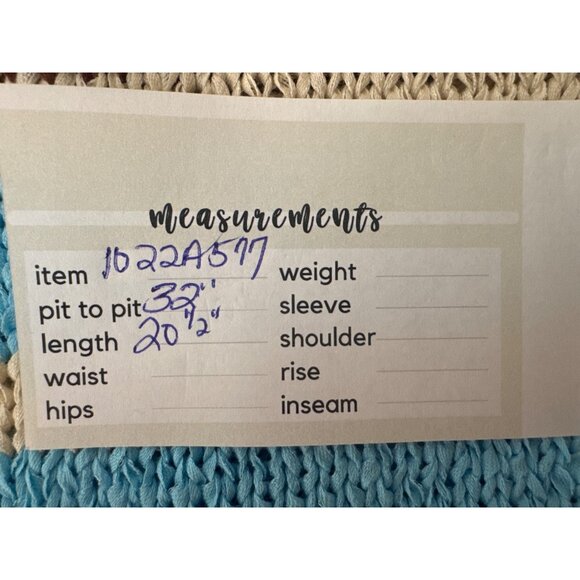 measurements
item 1022A577 weight
pit to pit 32" sleeve
length 20 1/2" shoulder
waist rise
hips inseam